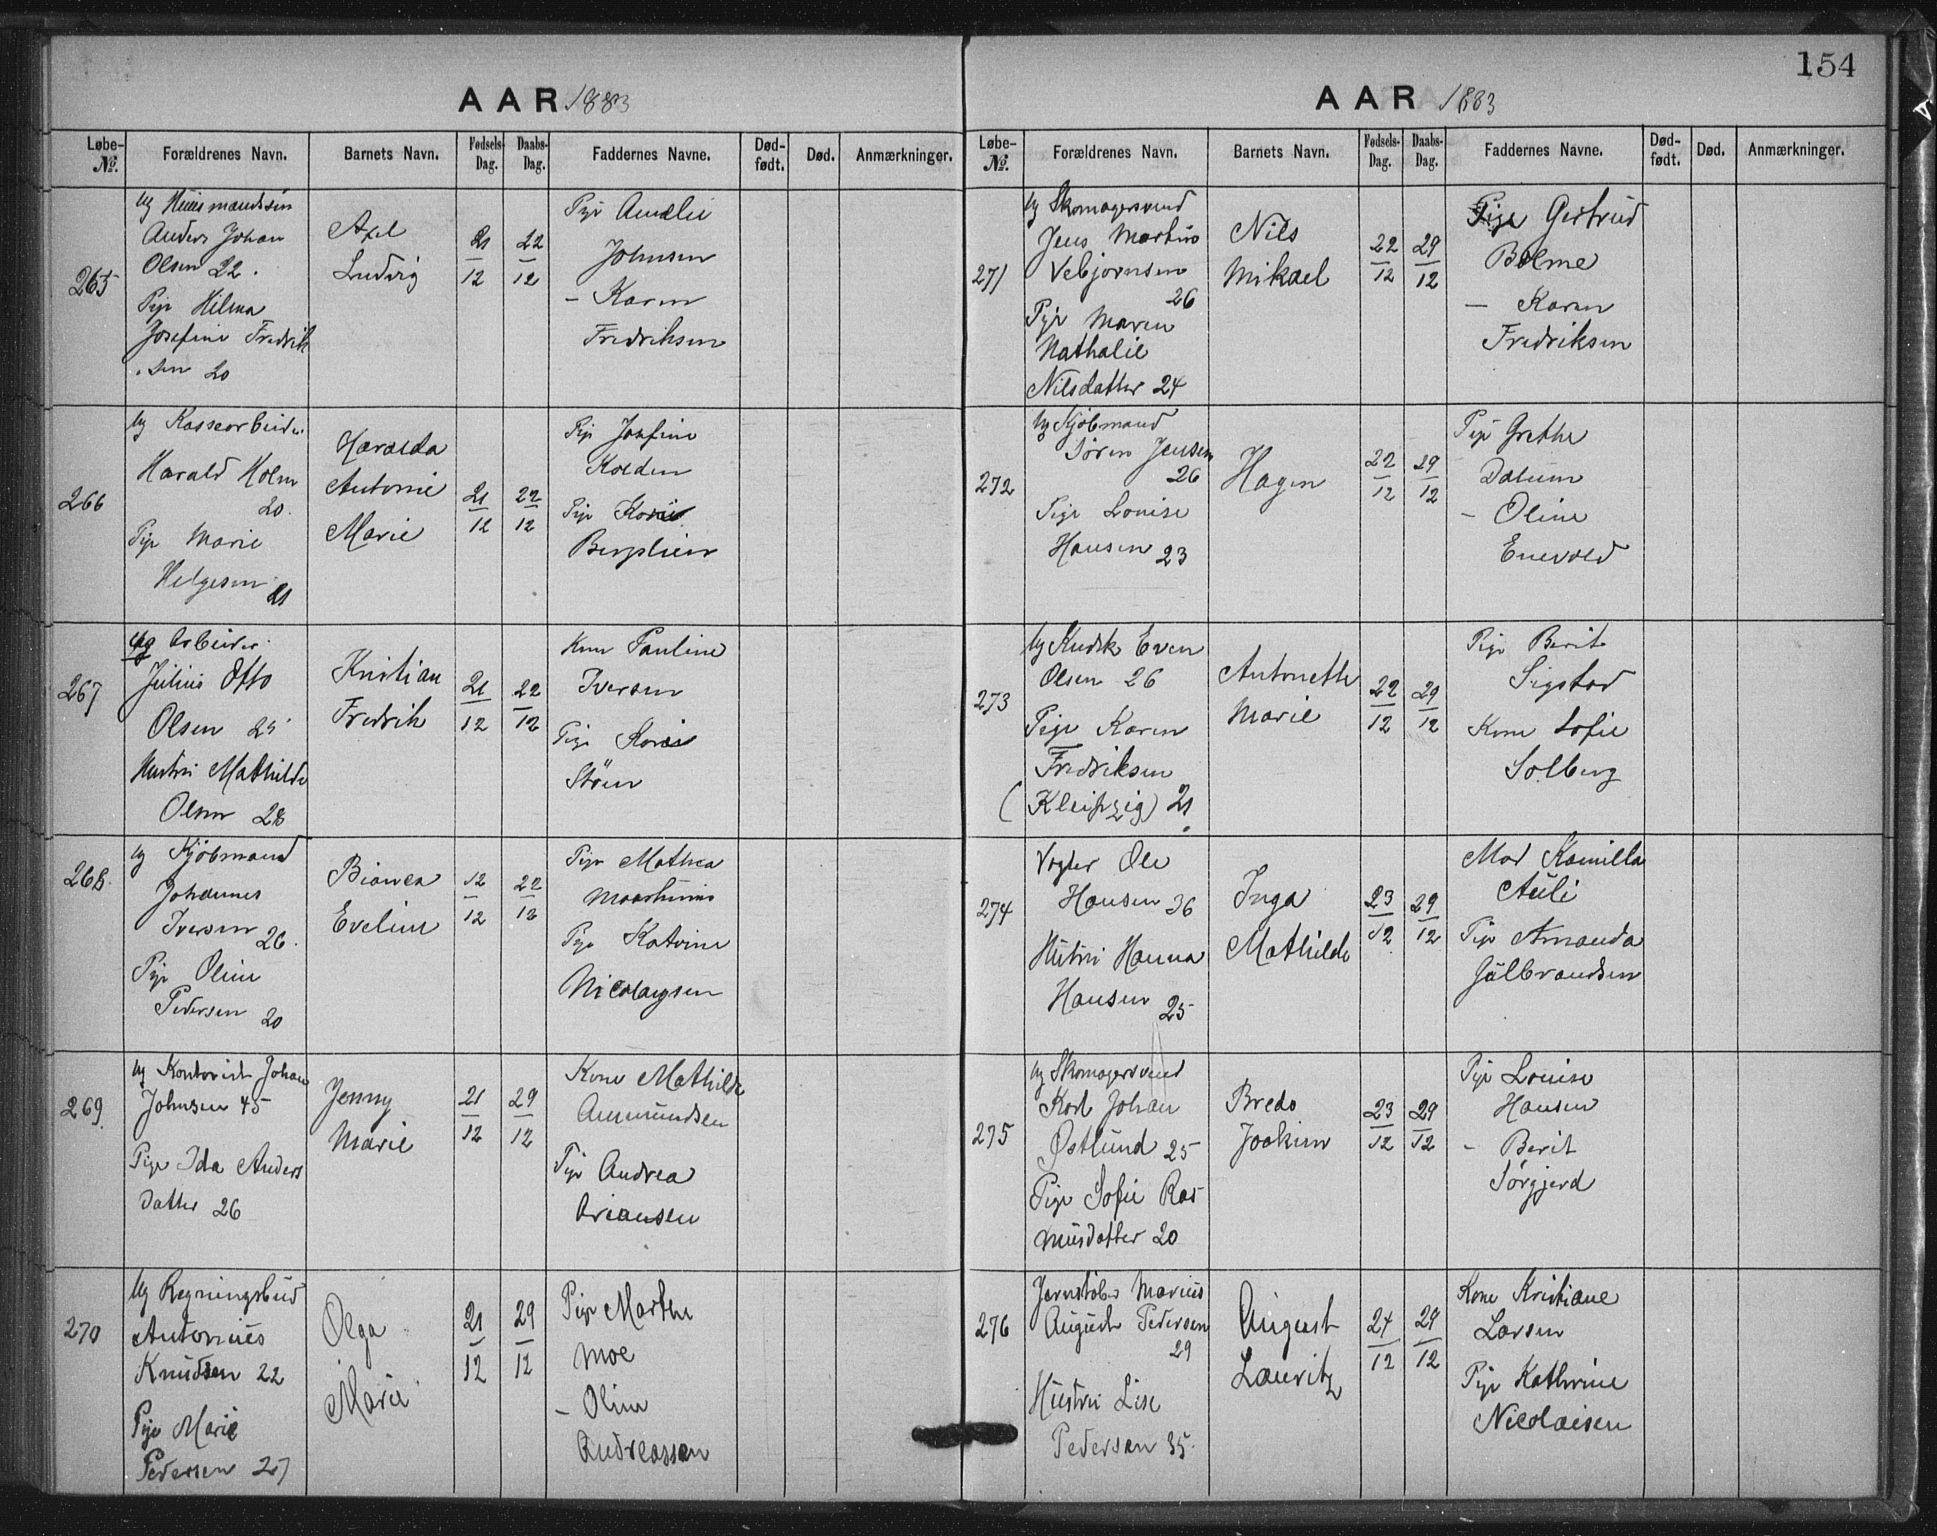 154
AAR 1883
Løbe-No. Forældrenes Navn. Barnets Navn. Fødsels-Dag. Daabs-Dag. Faddernes Navne. Død-født. Død. Anmærkninger.
265
Ug
Anders Johan
Olsen 22.
Pige Hilma
Josefine Fredrik
sen 20
Axel
Ludvig
21/12
22/12
Pige Amalie
Johnsen
- Karen
Fredriksen
266
Ug
Harald Holm
20.
Pige Marie
Helgesen 21
Haralda
Antonie
Marie
21/12
22/12
Pige Josefine
Kolden
Pige
267
Arbeider
Julius Otto
Olsen 25
Hustru Mathilde
Olsen 28
Kristian
Fredrik
21/12
22/12
Kone Pauline
Iversen
Pige
Støen
268.
Ug Kjøbmand
Johannes
Iversen 26.
Pige Oline
Pedersen 20
Bianca
Eveline
12/12
22/12
Pige Mathea
Pige Katrine
Nicolaysen
269.
Ug Kontorist Johan
Johnsen 45
Pige Ida Anders
datter 26
Jenny
Marie
21/12
29/12
Kone Mathilde
Ammundsen
Pige Andrea
Ariansen
270
Ug Regningsbud
Antonius
Knudsen 22
Pige Marie
Pedersen 27
Olga
Marie
21/12
29/12
Pige Marthe
Moe
- Oline
Andreassen
AAR 1883
Løbe-No. Forældrenes Navn. Barnets Navn. Fødsels-Dag. Daabs-Dag. Faddernes Navne. Død-født. Død. Anmærkninger.
271
Ug Skomagersvend
Jens Martin
Vebjørnsen
26
Pige Maren
Nathalie
Nilsdatter 24
Nils
Mikael
22/12
29/12
Pige Gertrud
Bolme
- Karen
Fredriksen
272
Ug Kjøbmand
Søren Jensen
26
Pige Louise
Hansen 23
Hagen
22/12
29/12
Pige Grethe
Dalum
- Oline
Enevold
273
Ug Kudsk Even
Olsen 26
Pige Karen
Fredriksen
(Kleipzig) 21
Antonette
Marie
22/12
29/12
Pige Berit
Sigstad
Kone Sofie
Solberg
274
Vogter Ole
Hansen 36
Hustru Hanna
Hansen 25
Inga
Mathilde
23/12
29/12
Mad Kamilla
Auli
Pige Amanda
Gulbrandsen
275
Ug Skomagersvend
Karl Johan
Østlund 25
Pige Sofie Ras
musdatter 20
Bredo
Joakim
23/12
29/12
Pige Louise
Hansen
- Berit
Sørgjerd
276
Jernstøber Marius
August Pedersen
29
Hustru Lise
Pedersen 35.
August
Lauritz
24/12
29/12
Kone Kristiane
Larsen
Pige Kathrine
Nicolaisen